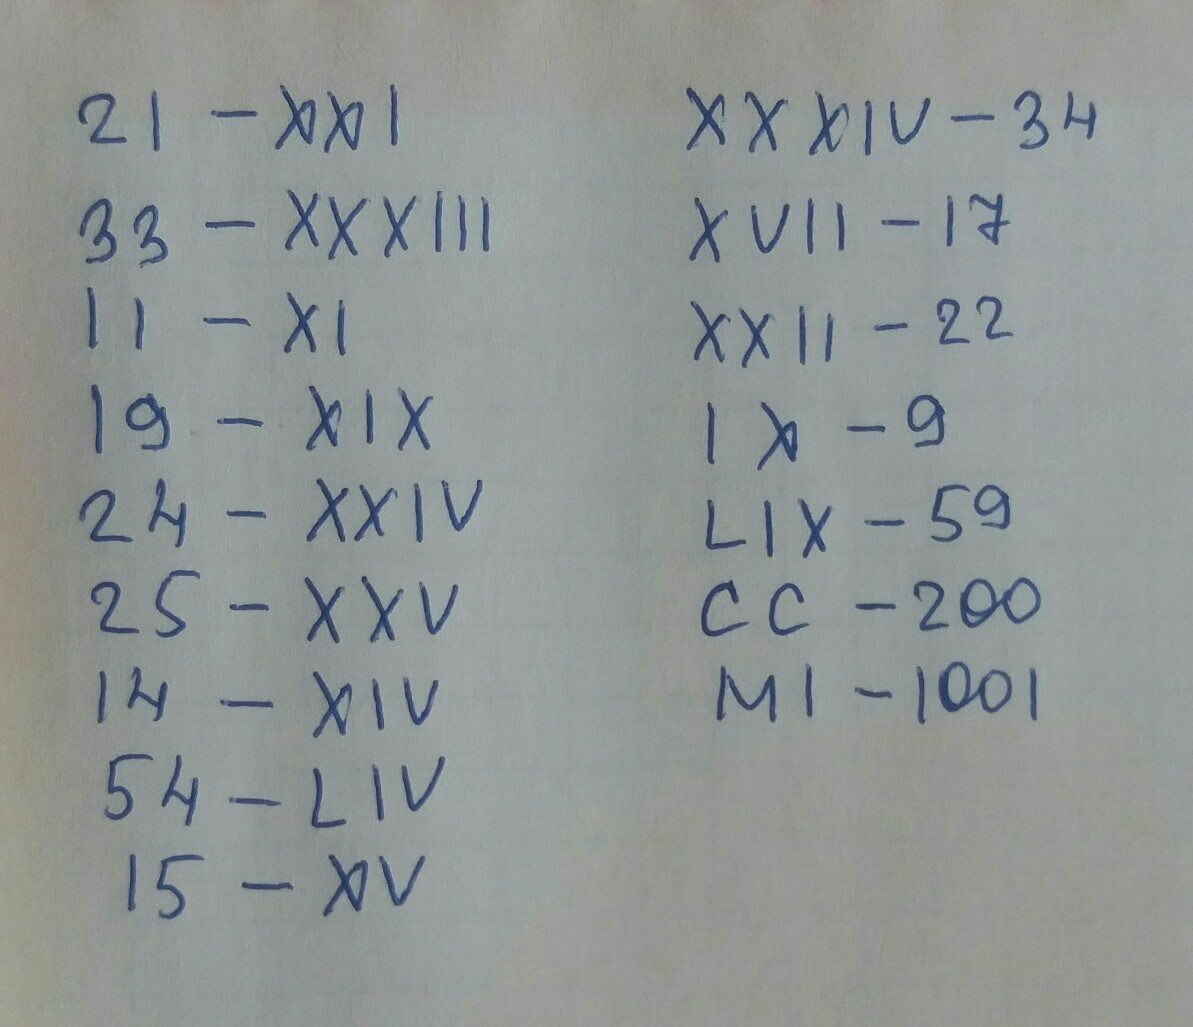 21 - XXI
33 - XXXIII
11 - XI
19 - XIX
24 - XXIV
25 - XXV
14 - XIV
54 - LIV
15 - XV
XXXIV - 34
XVII - 17
XXII - 22
IX - 9
LIX - 59
CC - 200
MI - 1001